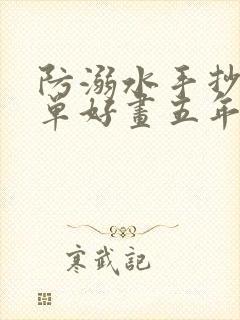 防溺水手抄
單好畫五年
寒武記